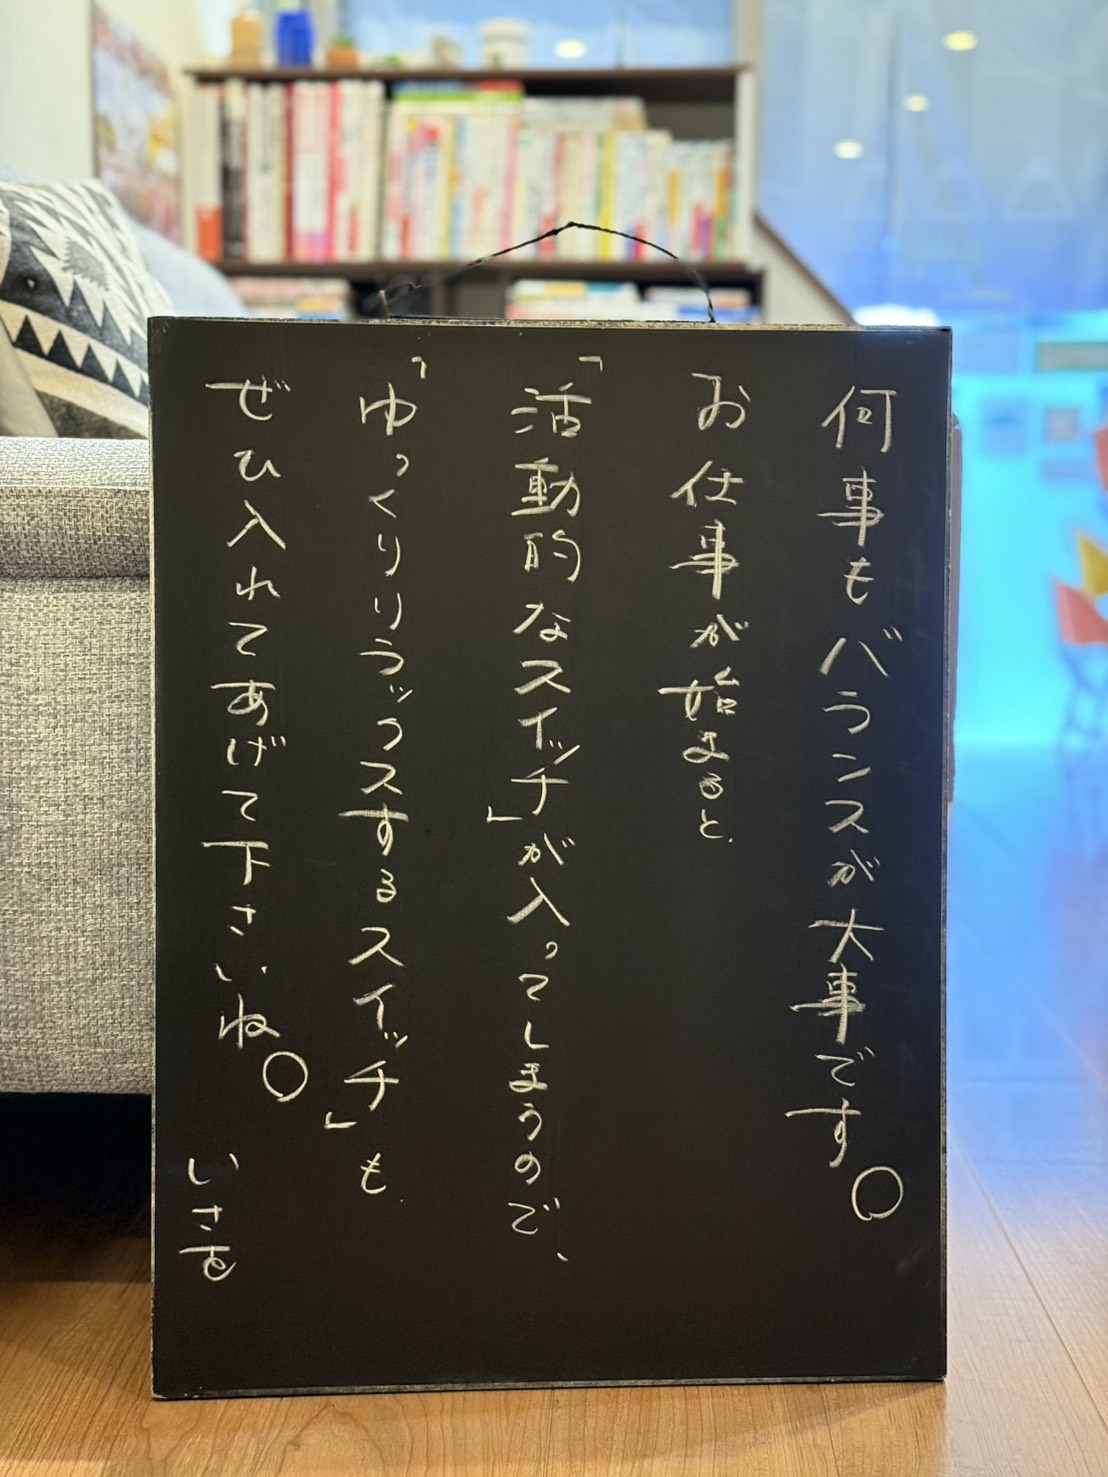 何事もバランスが大事です。
お仕事が始まると、
「活動的なスイッチ」が入ってしまうので、
「ゆっくりリラックスするスイッチ」も、
ぜひ入れてあげて下さいね。
いさを